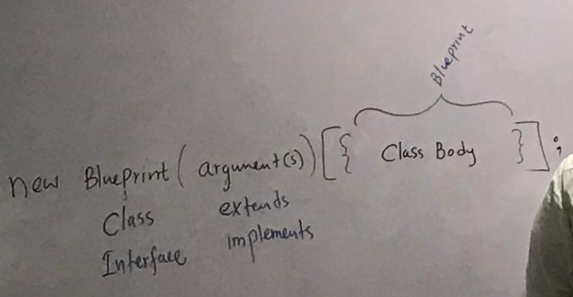 Blueprint
new Blueprint ( argument(s) ) [ { Class Body } ] ;
Class extends
Interface implements